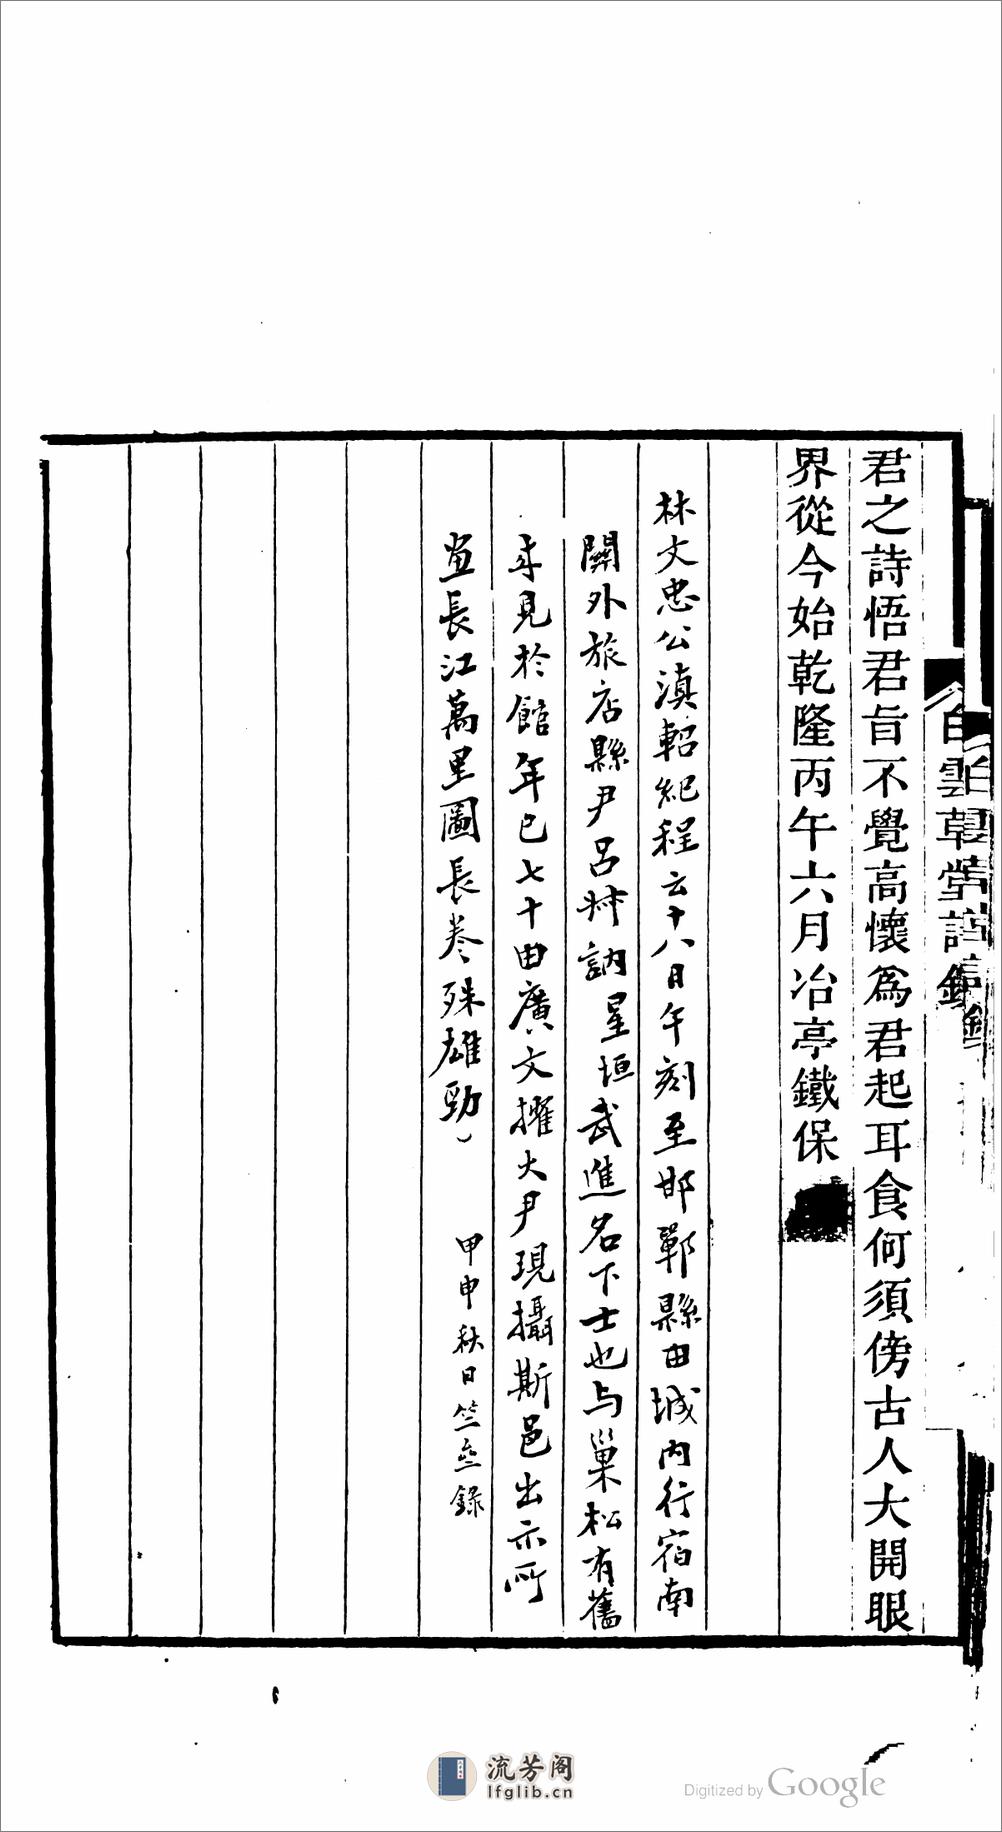 君之詩悟君旨不覺高懷爲君起耳食何須傍古人大開眼
界從今始乾隆丙午六月冶亭鐵保
林文忠公滇軺紀程云十八日午刻至邯鄲縣由城內行宿南
關外旅店縣尹呂叔訥星垣武進名下士也与巢松有舊
來見於館年已七十由廣文擢大尹現攝斯邑出示所
畫長江萬里圖長卷殊雄勁
甲申秋日竺
錄
白雲草堂詩鈔
流芳阁
lfglib.cn
Digitized by Google